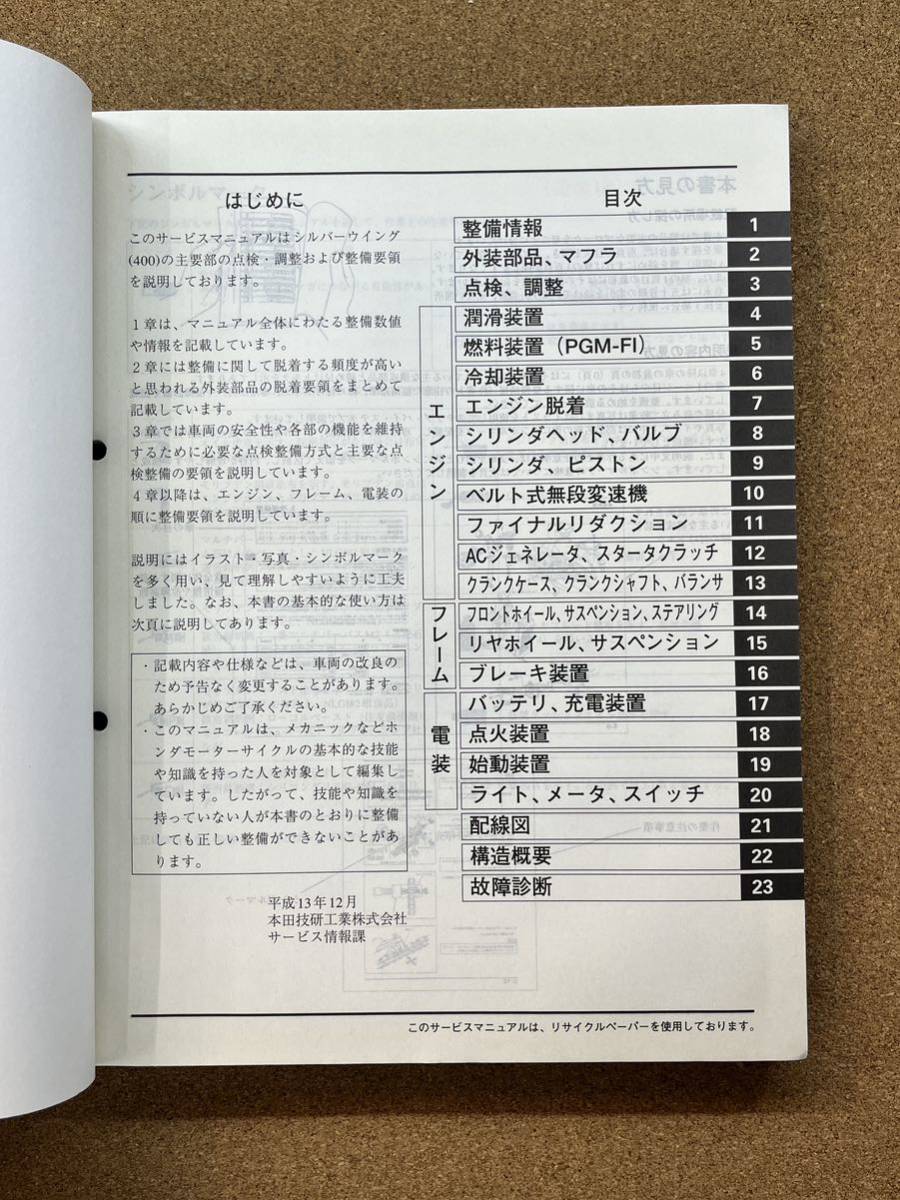 はじめに
このサービスマニュアルはシルバーウイング
(400)の主要部の点検・調整および整備要領
を説明しております。
1章は、マニュアル全体にわたる整備数値
や情報を記載しています。
2章には整備に関して脱着する頻度が高い
と思われる外装部品の脱着要領をまとめて
記載しています。
3章では車両の安全性や各部の機能を維持
するために必要な点検整備方式と主要な点
検整備の要領を説明しています。
4章以降は、エンジン、フレーム、電装の
順に整備要領を説明しています。
説明にはイラスト・写真・シンボルマーク
を多く用い、見て理解しやすいように工夫
しました。なお、本書の基本的な使い方は
次頁に説明してあります。
・記載内容や仕様などは、車両の改良の
ため予告なく変更することがあります。
あらかじめご了承ください。
・このマニュアルは、メカニックなどホ
ンダモーターサイクルの基本的な技能
や知識を持った人を対象として編集し
ています。したがって、技能や知識を
持っていない人が本書のとおりに整備
しても正しい整備ができないことがあ
ります。
平成13年12月
本田技研工業株式会社
サービス情報課
目次
整備情報 1
外装部品、マフラ 2
点検、調整 3
エンジン
潤滑装置 4
燃料装置(PGM-FI) 5
冷却装置 6
エンジン脱着 7
シリンダヘッド、バルブ 8
シリンダ、ピストン 9
ベルト式無段変速機 10
ファイナルリダクション 11
ACジェネレータ、スタータクラッチ 12
クランクケース、クランクシャフト、バランサ 13
フレーム
フロントホイール、サスペンション、ステアリング 14
リヤホイール、サスペンション 15
ブレーキ装置 16
電装
バッテリ、充電装置 17
点火装置 18
始動装置 19
ライト、メータ、スイッチ 20
配線図 21
構造概要 22
故障診断 23
このサービスマニュアルは、リサイクルペーパーを使用しております。